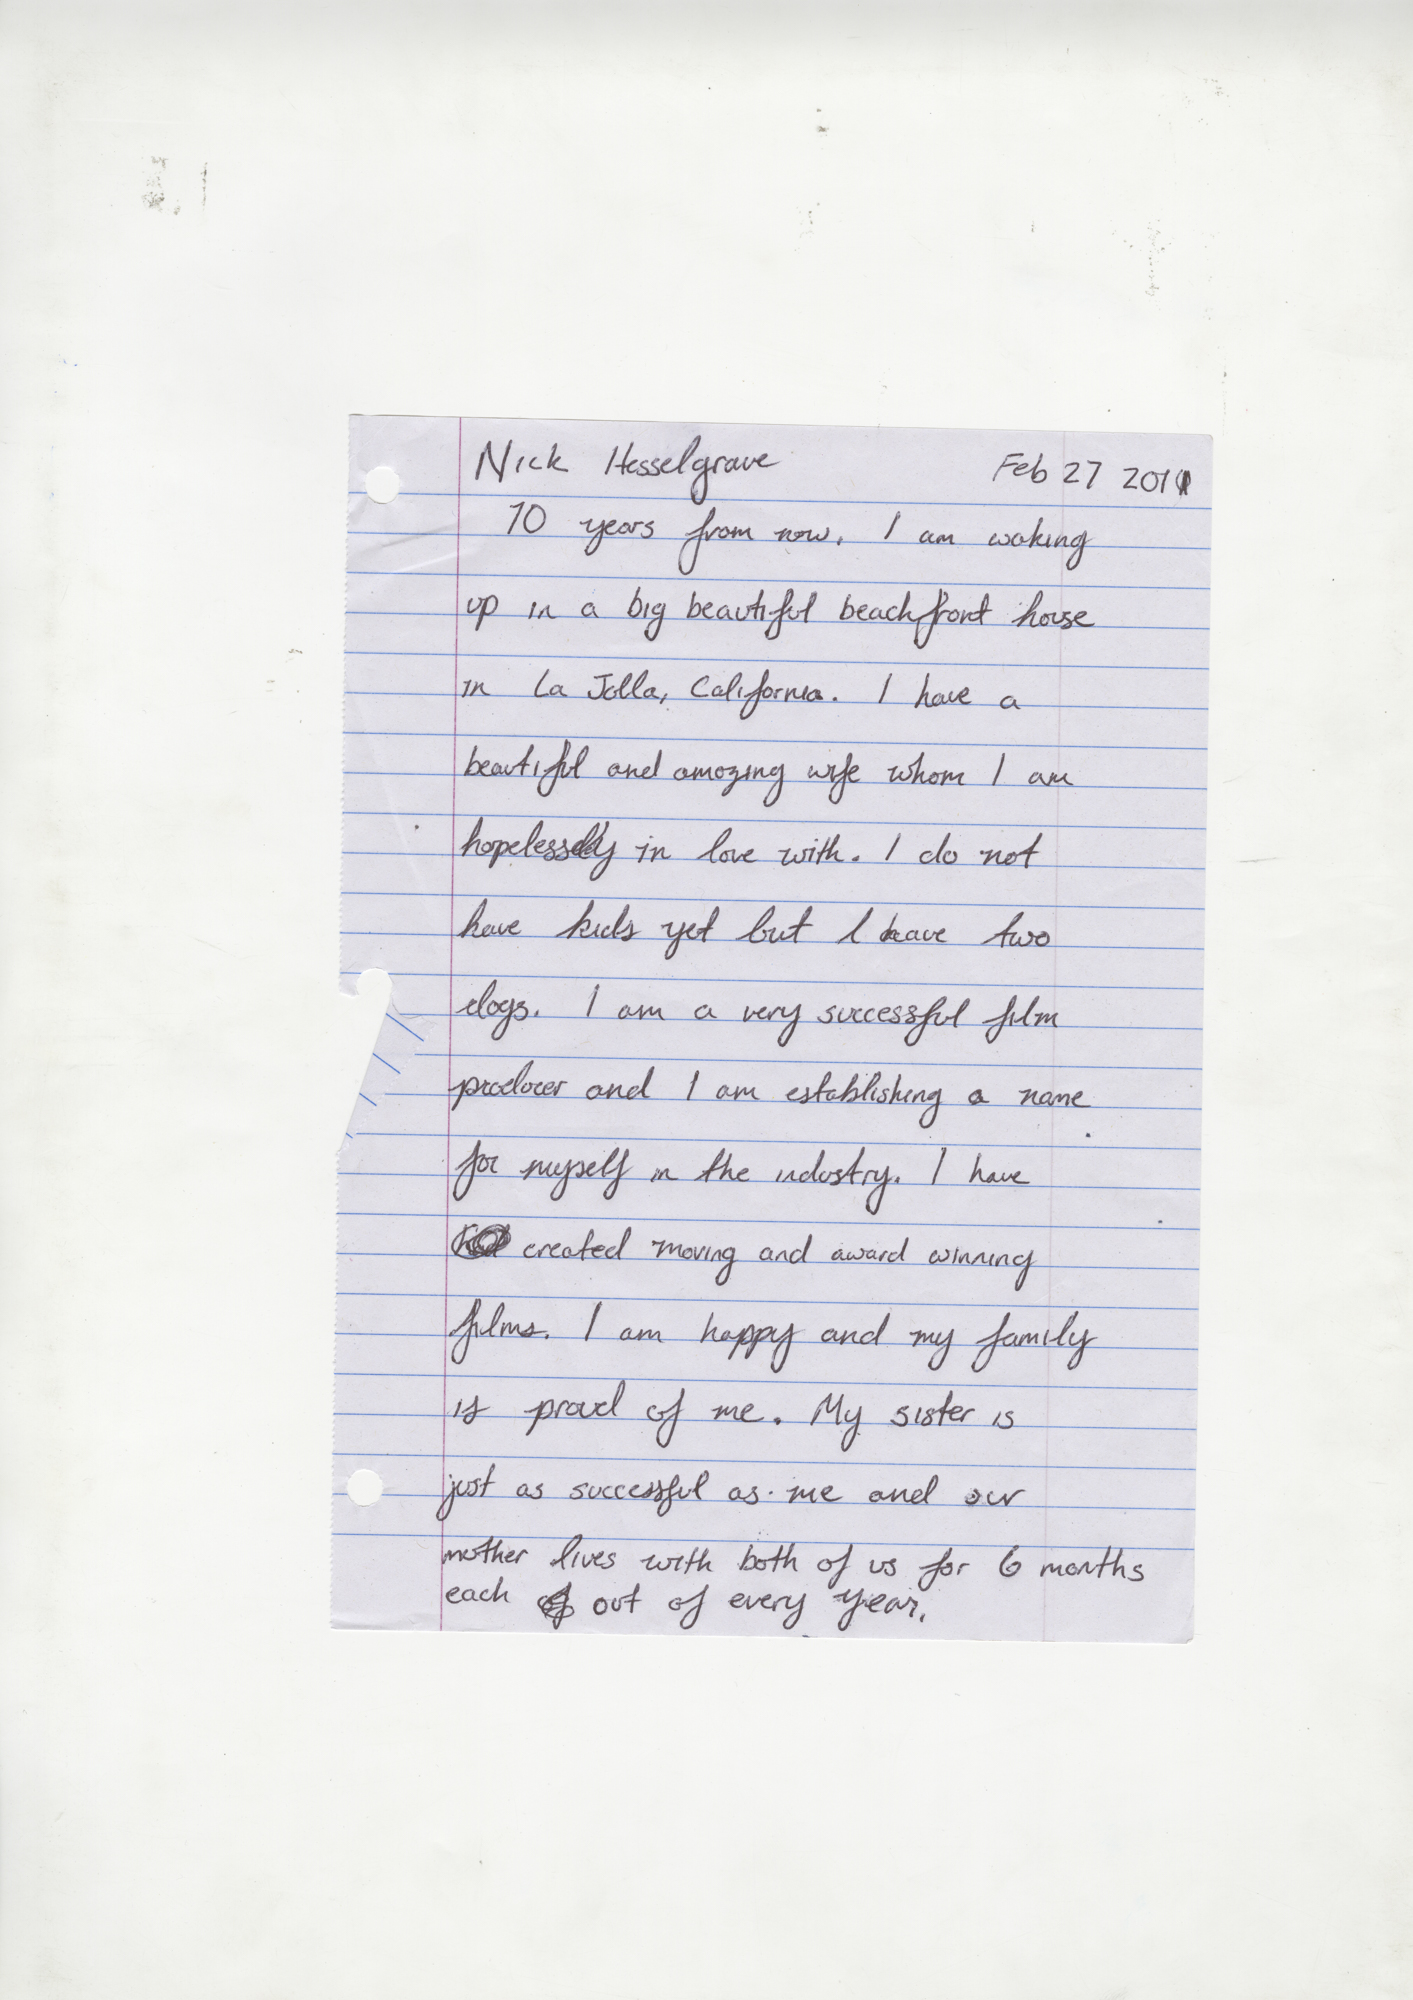 Nick Hesselgrave Feb 27 2011
10 years from now. I am waking
up in a big beautiful beachfront house
in La Jolla, California. I have a
beautiful and amazing wife whom I am
hopelessly in love with. I do not
have kids yet but I have two
dogs. I am a very successful film
producer and I am establishing a name
for myself in the industry. I have
created moving and award winning
films. I am happy and my family
is proud of me. My sister is
just as successful as me and our
mother lives with both of us for 6 months
each out of every year.